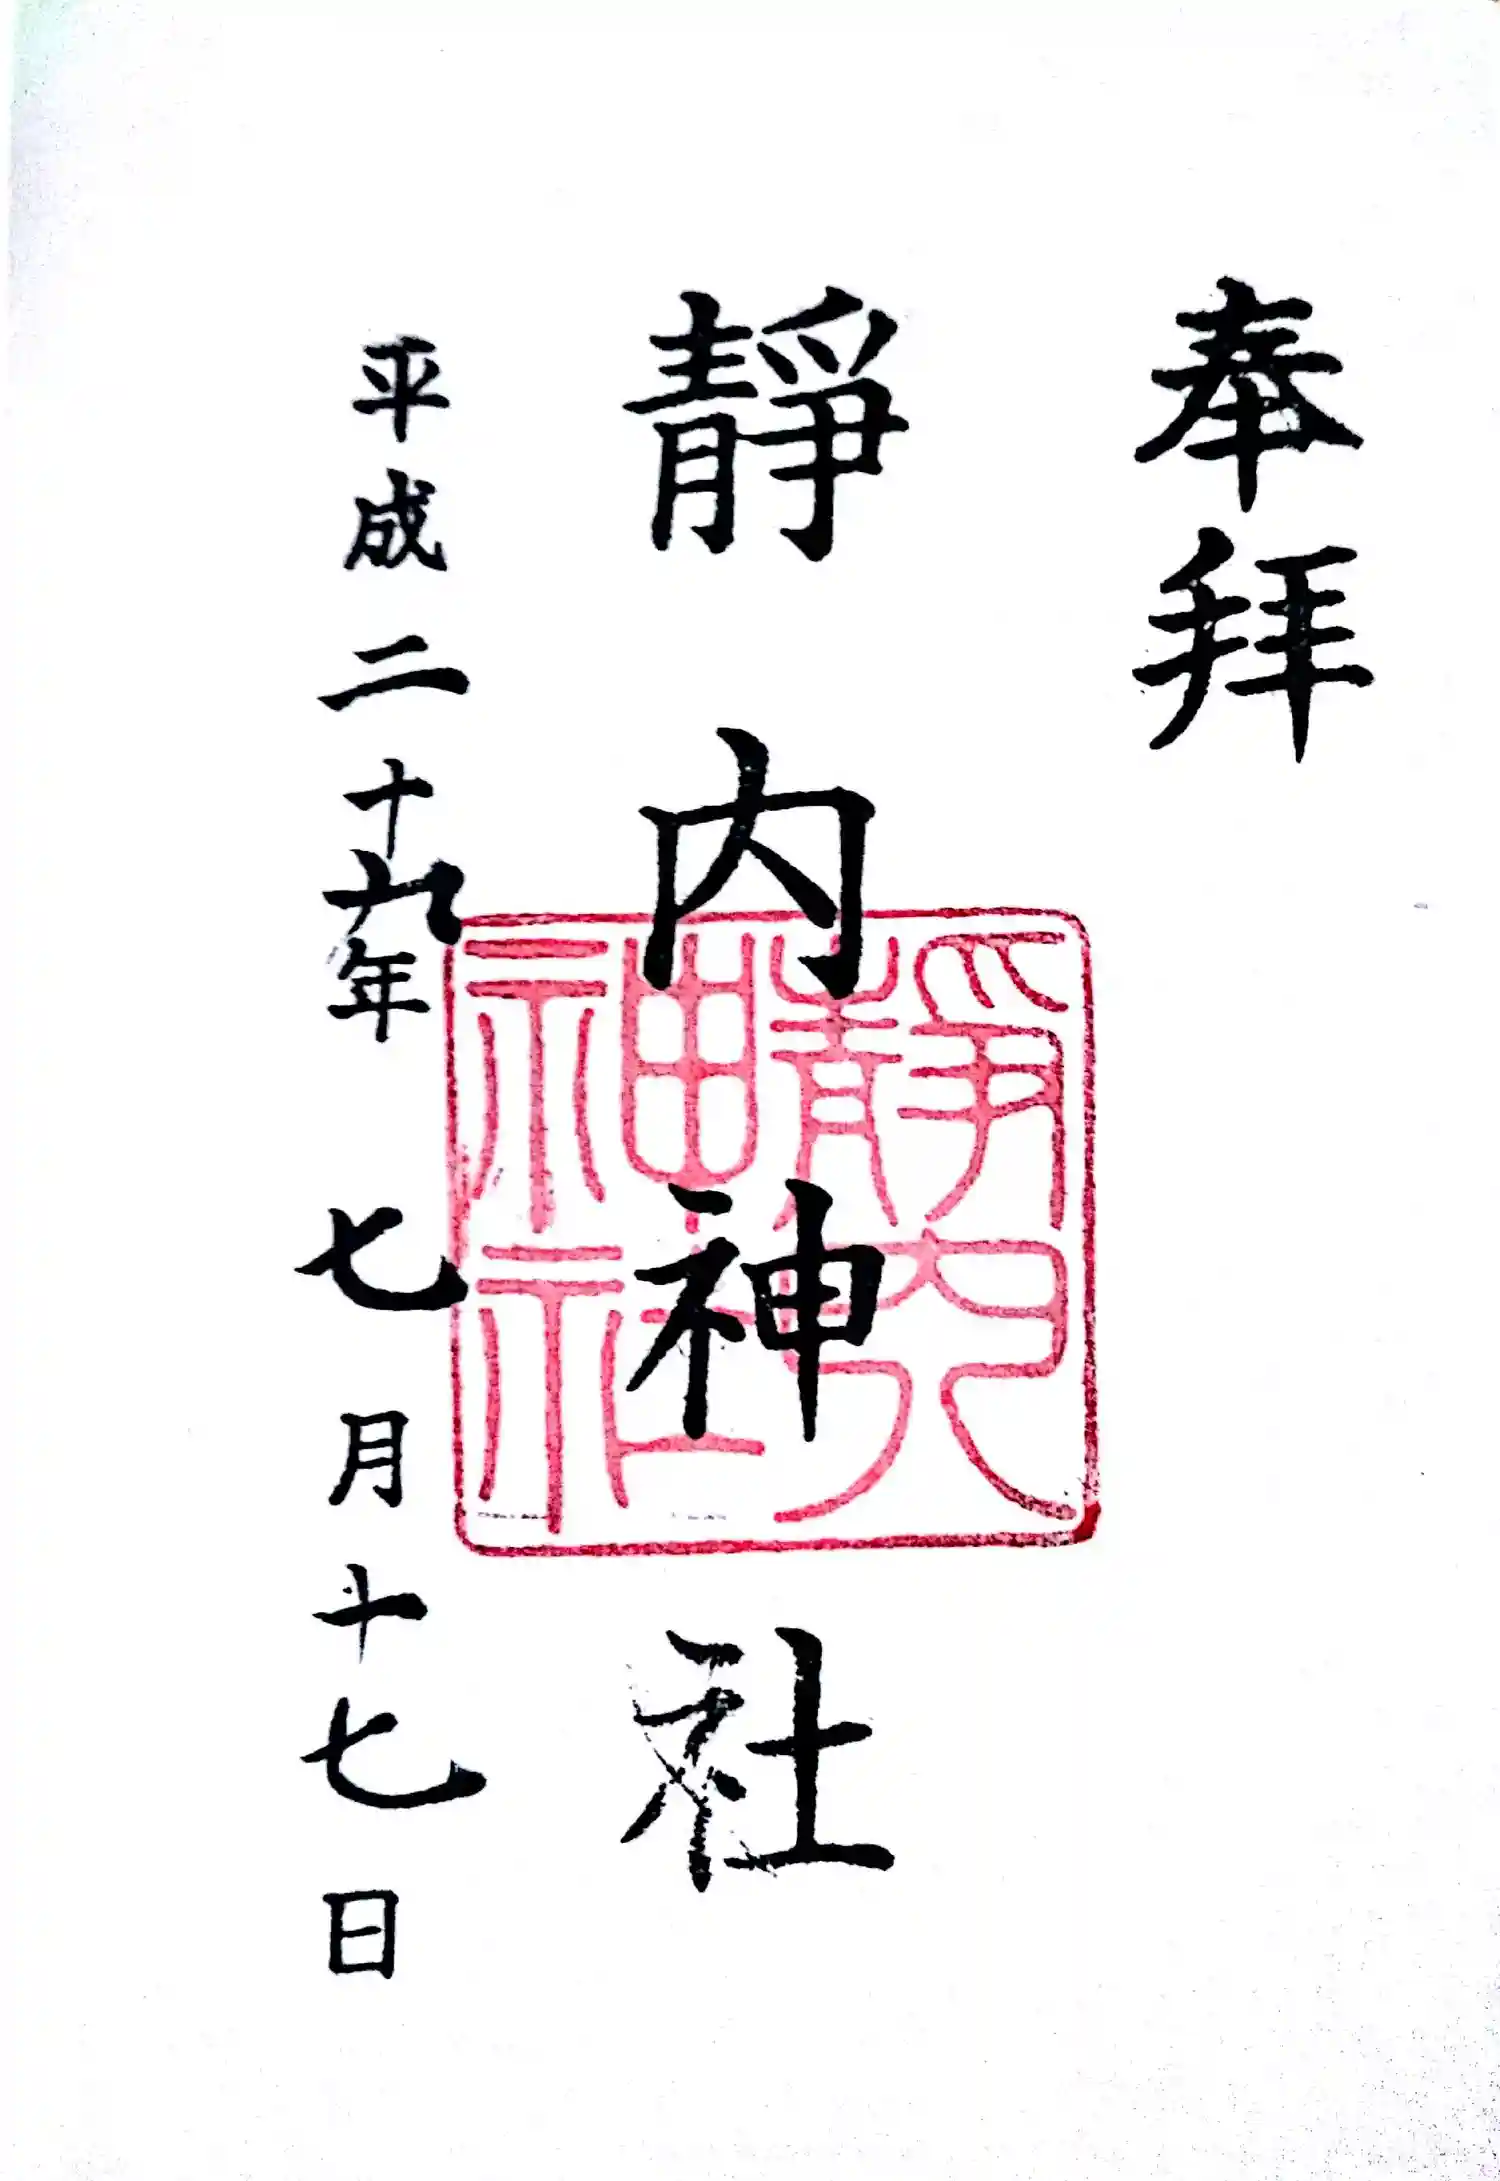 奉拝
靜内神社
平成二十九年 七月十七日
靜内
神社